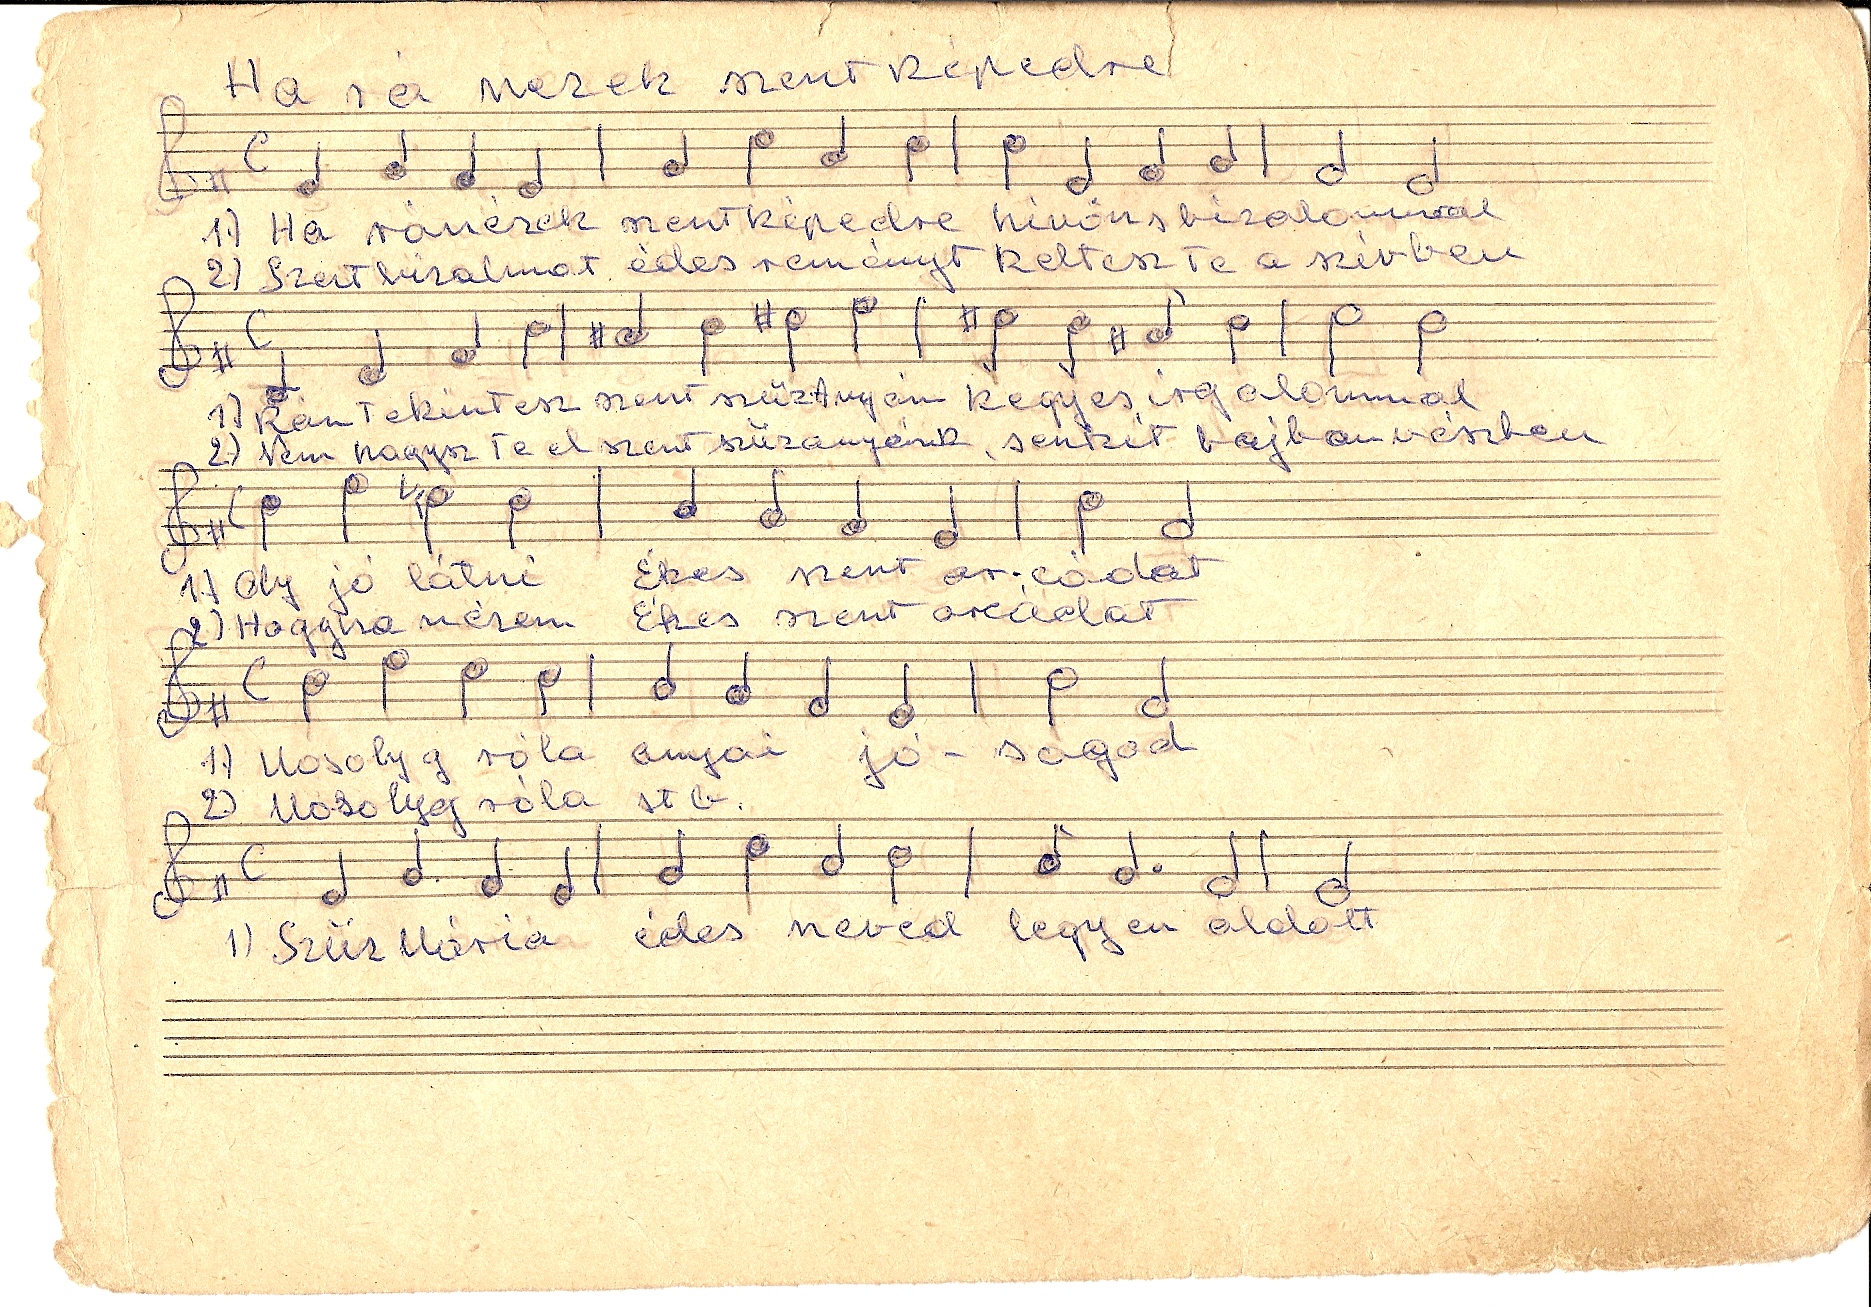 Ha rá nezek szentképedre
1) Ha ránézek szentképedre hivőns bizalommal
2) Szent bizalmat édes reményt keltesz Te a szivben
1) Rám Tekintesz szent szüzAnyám kegyes irgalommal
2) Nem hagysz Te el szent szüzanyánk, senkit bajban vészben
1) Oly jó látni Ékes szent ar-cádat
2) Hogyha nézem Ékes szent arcádat
1) Mosolyg róla anyai jó - sagod
2) Mosolyg róla stb.
1) Szüz Mária édes neved legyen áldott